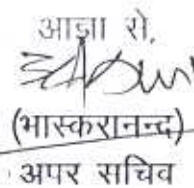 आज्ञा से,
(भास्करानन्द)
अपर सचिव